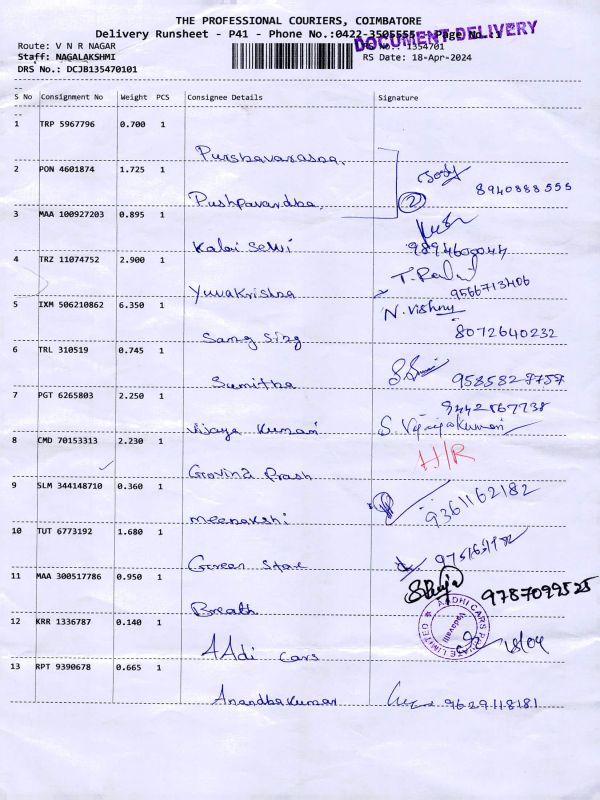 THE PROFESSIONAL COURIERS, COIMBATORE
Delivery Runsheet - P41 - Phone No.:0422-3505555 Page No.:1
DOCUMENT DELIVERY
Route: V N R NAGAR
DRS No.: 1354701
Staff: NAGALAKSHMI
RS Date: 18-Apr-2024
DRS No.: DCJB135470101
S No Consignment No Weight PCS Consignee Details Signature
1 TRP 5967796 0.700 1
2 PON 4601874 1.725 1
Pushpavardha. 2 8940888555
3 MAA 100927203 0.895 1
Kalai Selvi 9894608044
4 TRZ 11074752 2.900 1
Yuvakrishna 9566713406
5 IXM 506210862 6.350 1 N. Vishnu
Sang Sing 8072640232
6 TRL 310519 0.745 1
Sumitha
7 PGT 6265803 2.250 1
Vijaya Kumari S. Vijayakumari
8 CMD 70153313 2.230 1 H/R
Govind Prash
9 SLM 344148710 0.360 1
meenakshi 9361162182
10 TUT 6773192 1.680 1
Green Star
11 MAA 300517786 0.950 1 9787099525
Breath
12 KRR 1336787 0.140 1 18/04
AAdi Cars
13 RPT 9390678 0.665 1
Anandhakumar 9629118181